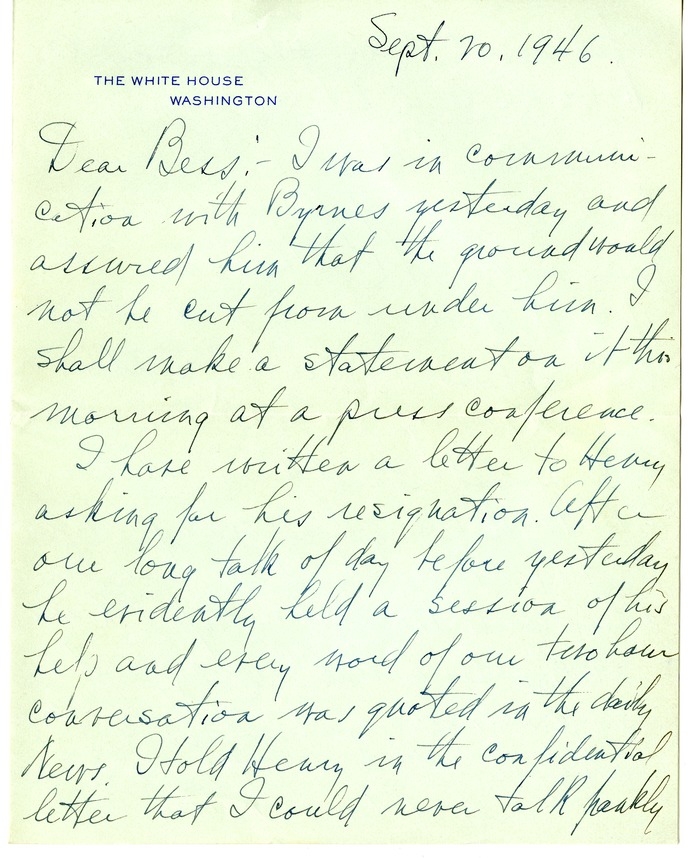 Sept. 20, 1946.
THE WHITE HOUSE
WASHINGTON
Dear Bess:- I was in communi-
cation with Byrnes yesterday and
assured him that the ground would
not be cut from under him. I
shall make a statement on it this
morning at a press conference.
I have written a letter to Henry
asking for his resignation. After
our long talk of day before yesterday
he evidently held a session of his
help and every word of our two hour
conversation was quoted in the daily
News. I told Henry in the confidential
letter that I could never talk frankly